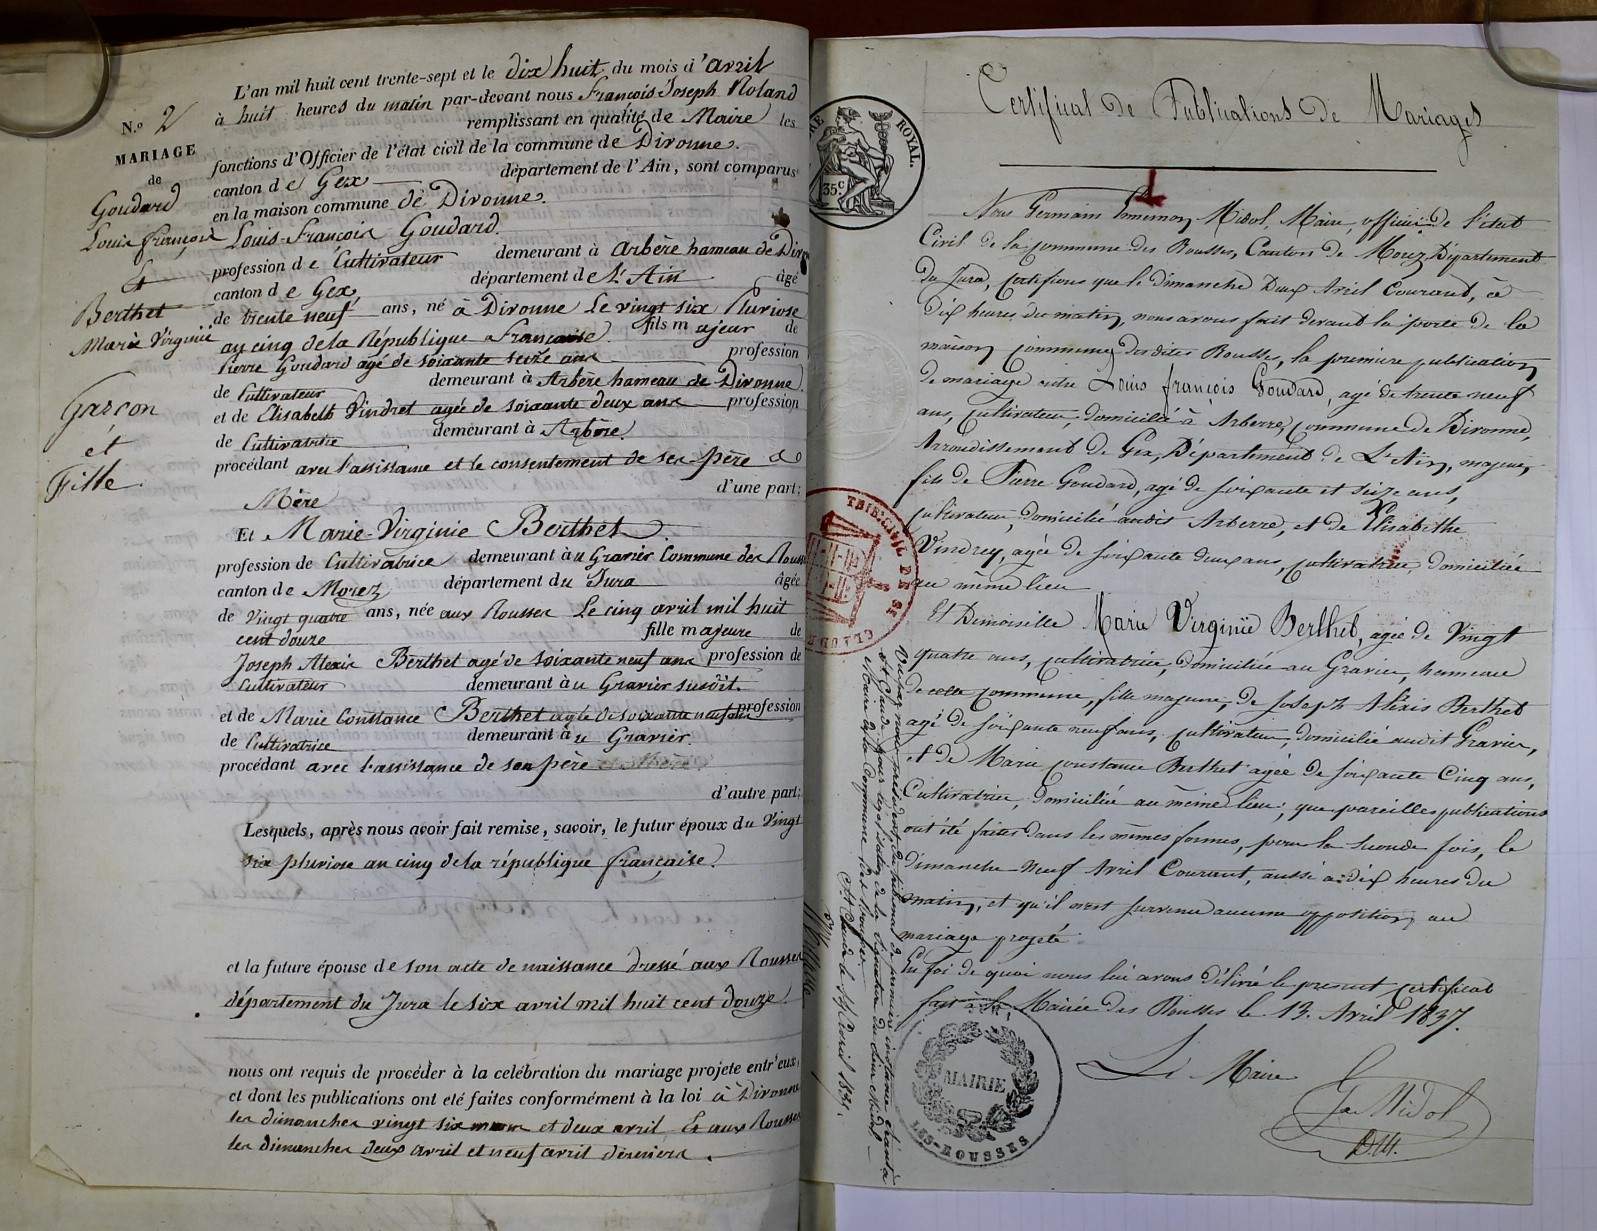 L'an mil huit cent trente-sept et le dix huit du mois d'avril
à huit heures du matin par-devant nous François Joseph Roland
remplissant en qualité de Maire les
fonctions d'Officier de l'état civil de la commune de Divonne.
canton de Gex département de l'Ain, sont comparus
en la maison commune de Divonne.
N.o 2
MARIAGE
de
Goudard
Louis françois
Et
Berthet
Marie Virginie
Garçon
et
Fille
Louis-François Goudard.
profession de Cultivateur demeurant à Arbère hameau de Div
canton de Gex département de l'Ain âgé
de trente neuf ans, né à Divonne Le vingt six Pluviose
an cinq de la République Française. fils majeur de
Pierre Goudard agé de soixante seize ans profession
de Cultivateur demeurant à Arbère hameau de Divonne.
et de Elisabeth Vindret agée de soixante deux ans profession
de Cultivatrice demeurant à Arbère.
procédant avec l'assistance et le consentement de ses père &
Mère d'une part;
Et Marie-Virginie Berthet.
profession de Cultivatrice demeurant au Gravier Commune des Rousses
canton de Morez département du Jura âgée
de Vingt quatre ans, née aux Rousses Le cinq avril mil huit
cent douze fille majeure de
Joseph Alexis Berthet agé de soixante neuf ans profession de
Cultivateur demeurant au Gravier susdit.
et de Marie Constance Berthet agée de soixante neuf ans profession
de Cultivatrice demeurant au Gravier.
procédant avec l'assistance de son père
d'autre part;
Lesquels, après nous avoir fait remise, savoir, le futur époux du Vingt
six pluviose an cinq de la république française.
et la future épouse de son acte de naissance dressé aux Rousses
département du Jura le six avril mil huit cent douze.
nous ont requis de procéder à la celébration du mariage projeté entr'eux,
et dont les publications ont elé faites conformément à la loi à Divonne
les dimanches vingt six mars et deux avril Et aux Rousses
les dimanches deux avril et neuf avril derniers.
ROYAL.
35c
Certificat de Publications de Mariages
Nous Germain Midol, Maire, officier de l'état
Civil de la Commune des Rousses, Canton de Morez Département
du Jura, Certifions que le dimanche Deux Avril Courant, à
dix heures du matin, nous avons fait devant la porte de la
maison Commune desdites Rousses, la première publication
de mariage entre Louis françois Goudard, agé de trente neuf
ans, Cultivateur, domicilié à Arberre, Commune de Divonne,
Arrondissement de Gex, Département de L'Ain, majeur,
fils de Pierre Goudard, agé de soixante et seize ans,
Cultivateur, domicilié audit Arberre, et de Elisabethe
Vindrey, agée de soixante deux ans, Cultivatrice, domiciliée
au même lieu
Et Demoiselle Marie Virginie Berthet, agée de Vingt
quatre ans, Cultivatrice, domiciliée au Gravier, hameau
de cette Commune, fille majeure, de Joseph Alexis Berthet
agé de soixante neuf ans, Cultivateur, domicilié audit Gravier,
et de Marie Constance Berthet agée de soixante Cinq ans,
Cultivatrice, domiciliée au même lieu; que pareilles publications
ont été faites dans les mêmes formes, pour la seconde fois, le
dimanche neuf Avril Courant, aussi à dix heures du
matin, et qu'il n'est survenu aucune opposition au
mariage projeté
En foi de quoi nous lui avons délivré le présent Certificat
fait à la Mairie des Rousses le 13. Avril 1837.
Le Maire
Ge Midol
TRIB. CIVIL DE ST CLAUDE
Vu par nous président du tribunal de première instance séant à
St Claude, pour légalisation de la signature du Sieur Midol
Maire de la Commune des Rousses
St Claude le Avril 1837.
MAIRIE
LES-ROUSSES